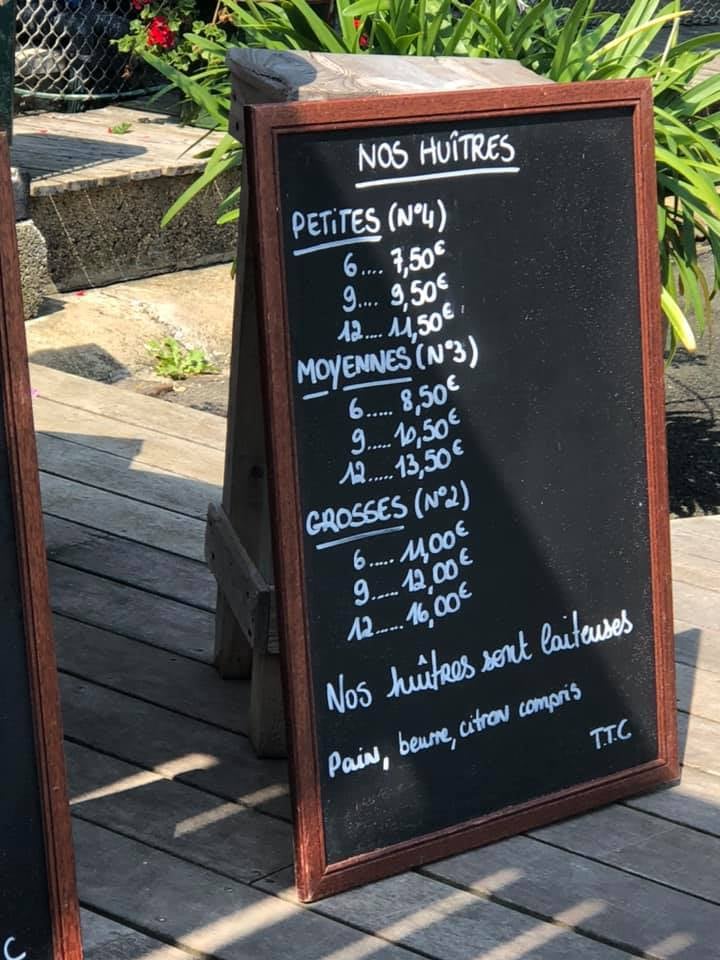 NOS HUÎTRES
PETITES (N°4)
6.... 7,50€
9.... 9,50€
12.... 11,50€
MOYENNES (N°3)
6..... 8,50€
9..... 10,50€
12..... 13,50€
GROSSES (N°2)
6..... 11,00€
9..... 12,00€
12..... 16,00€
Nos huîtres sont laiteuses
Pain, beurre, citron compris
T.T.C
C